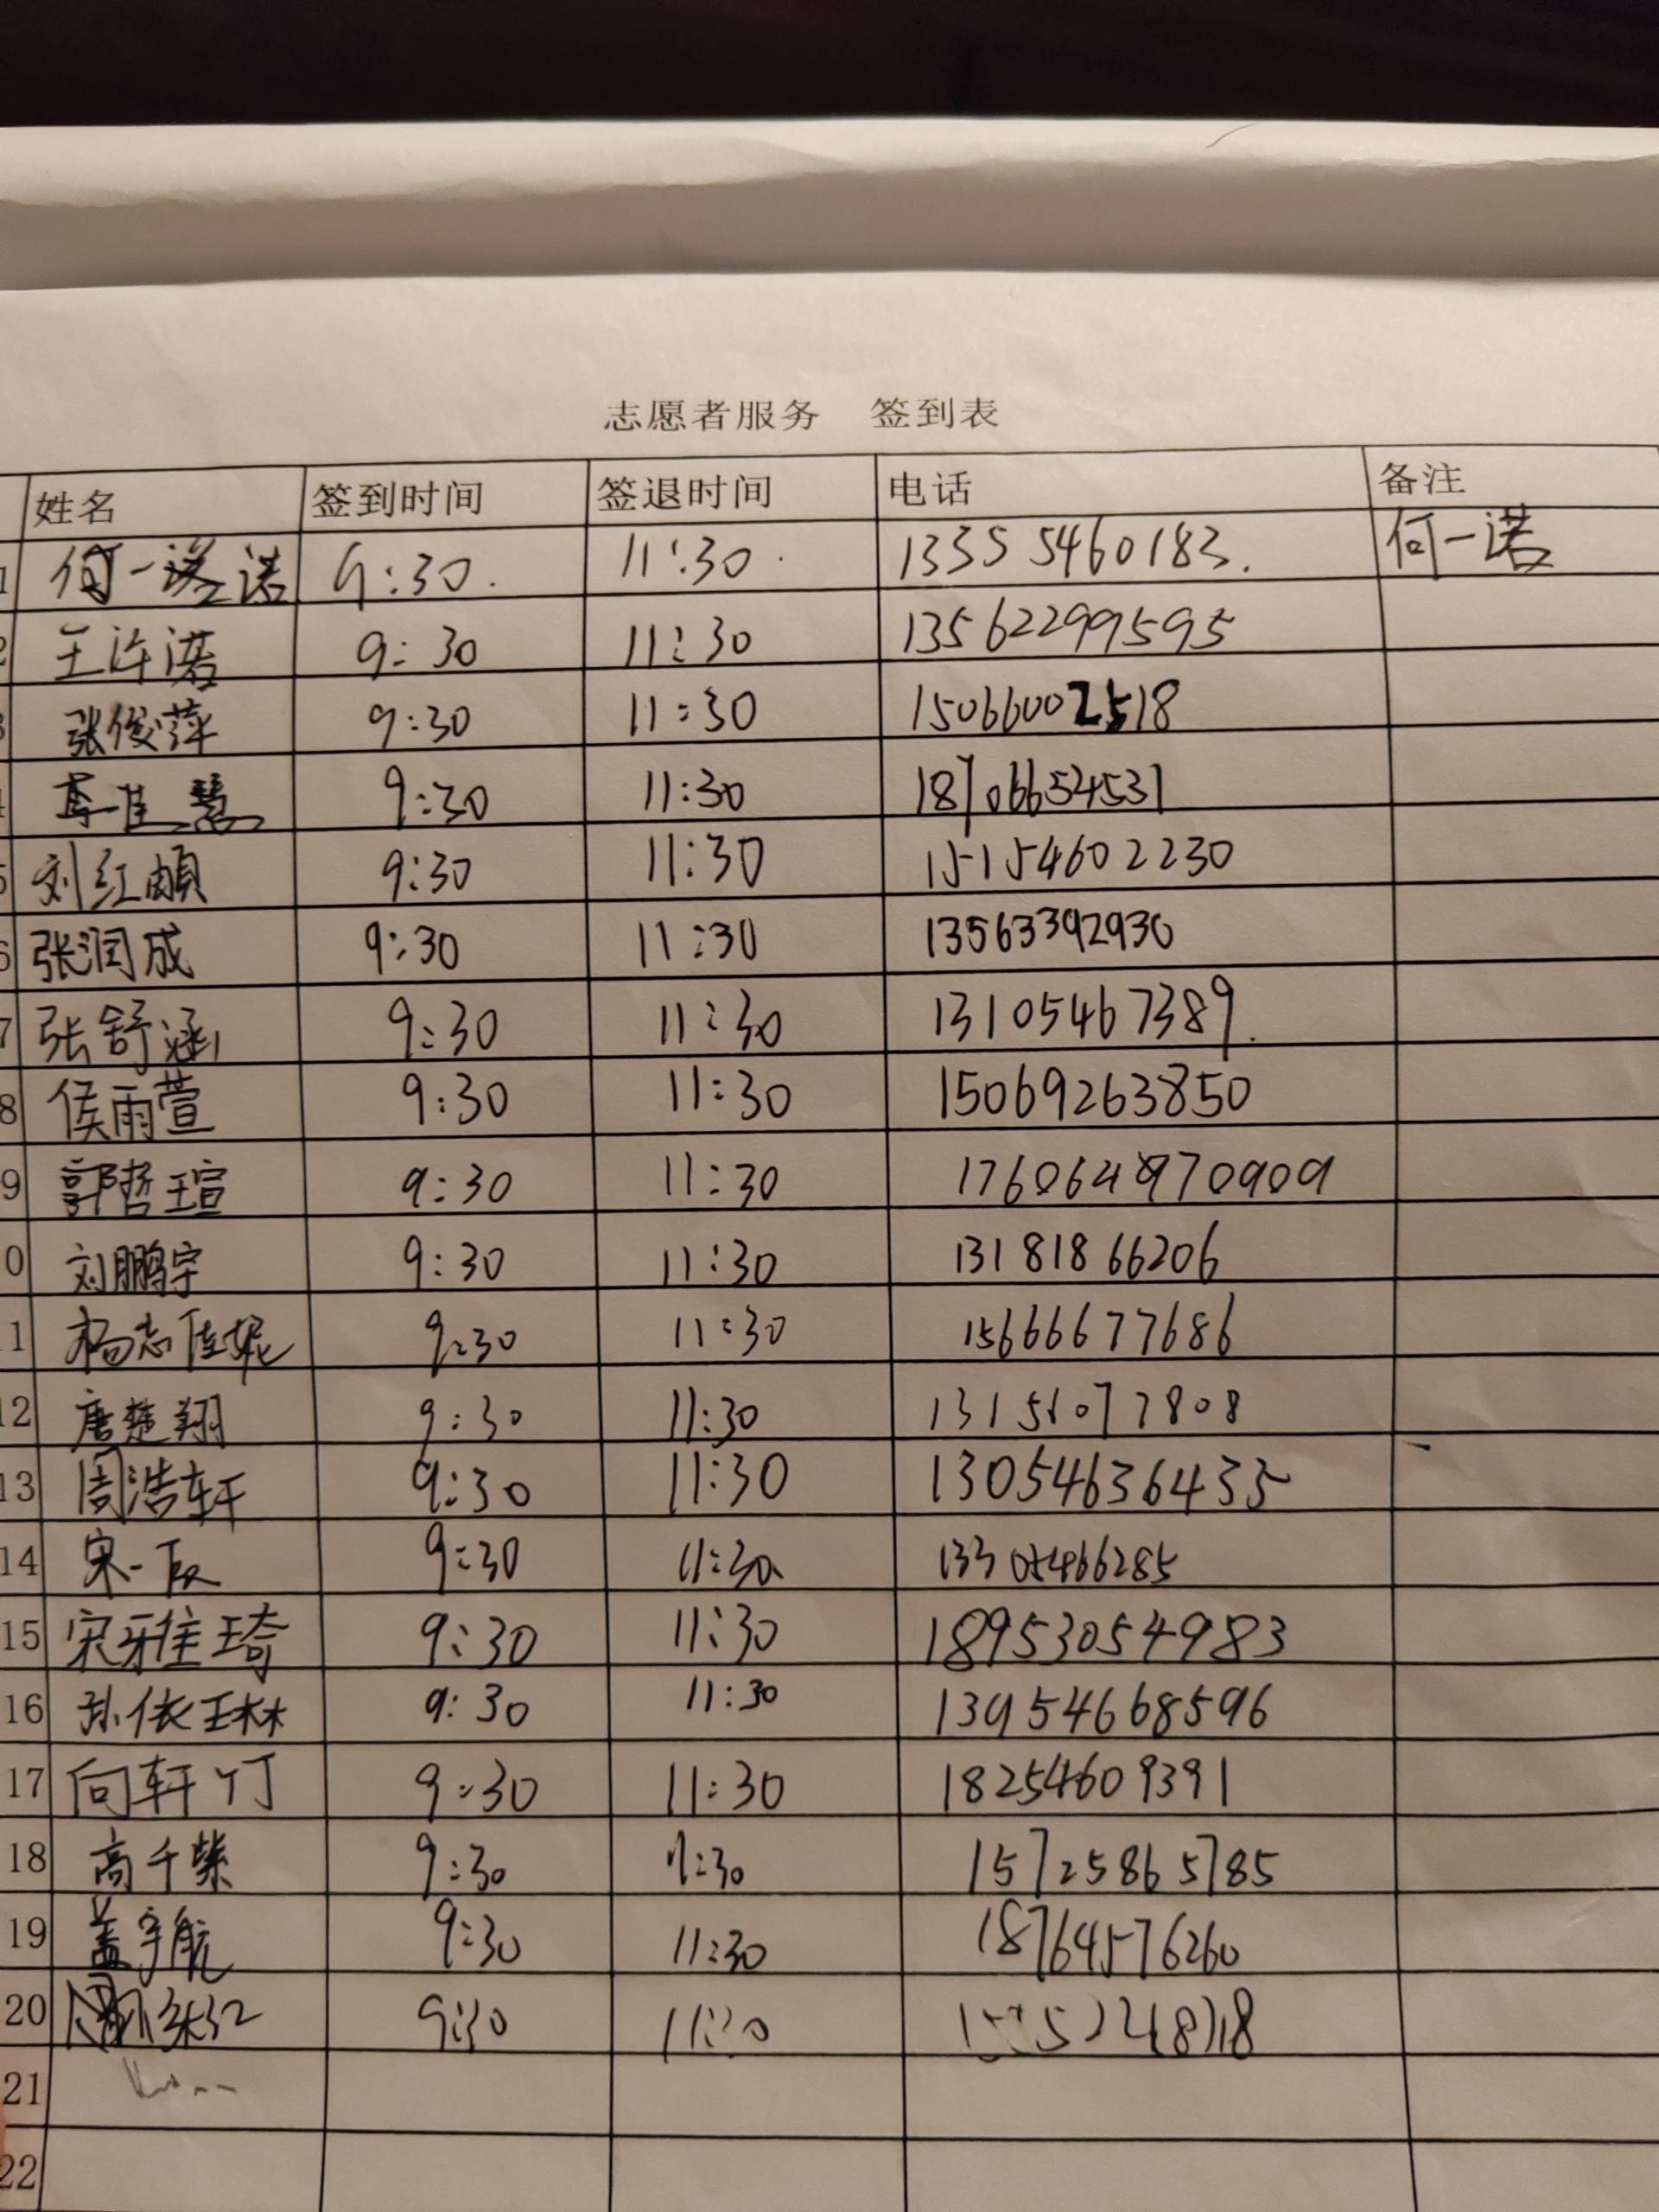 志愿者服务 签到表
姓名 签到时间 签退时间 电话 备注
1 何一诺 9:30. 11:30. 13355460183. 何一诺
2 王许诺 9:30 11:30 13562299595
3 张俊萍 9:30 11:30 15066002518
4 李佳慧 9:30 11:30 18706654531
5 刘红 9:30 11:30 15154602230
6 张润成 9:30 11:30 13563392930
7 张舒涵 9:30 11:30 13105467389.
8 侯雨萱 9:30 11:30 15069263850
9 郭哲瑄 9:30 11:30
0 刘鹏宇 9:30 11:30 13181866206
1 杨志佳妮 9:30 11:30 15666677686
12 唐楚翔 9:30 11:30
13 周浩轩 9:30 11:30 13054636435
14 宋一 9:30 11:30 13305466285
15 宋雅琦 9:30 11:30 18953054983
16 孙依琳 9:30 11:30 13954668596
17 向轩竹 9:30 11:30 18254609391
18 高千 9:30 15725865785
19 盖宇航 9:30 11:30 18764576260
20 9:30 11:30
21
22